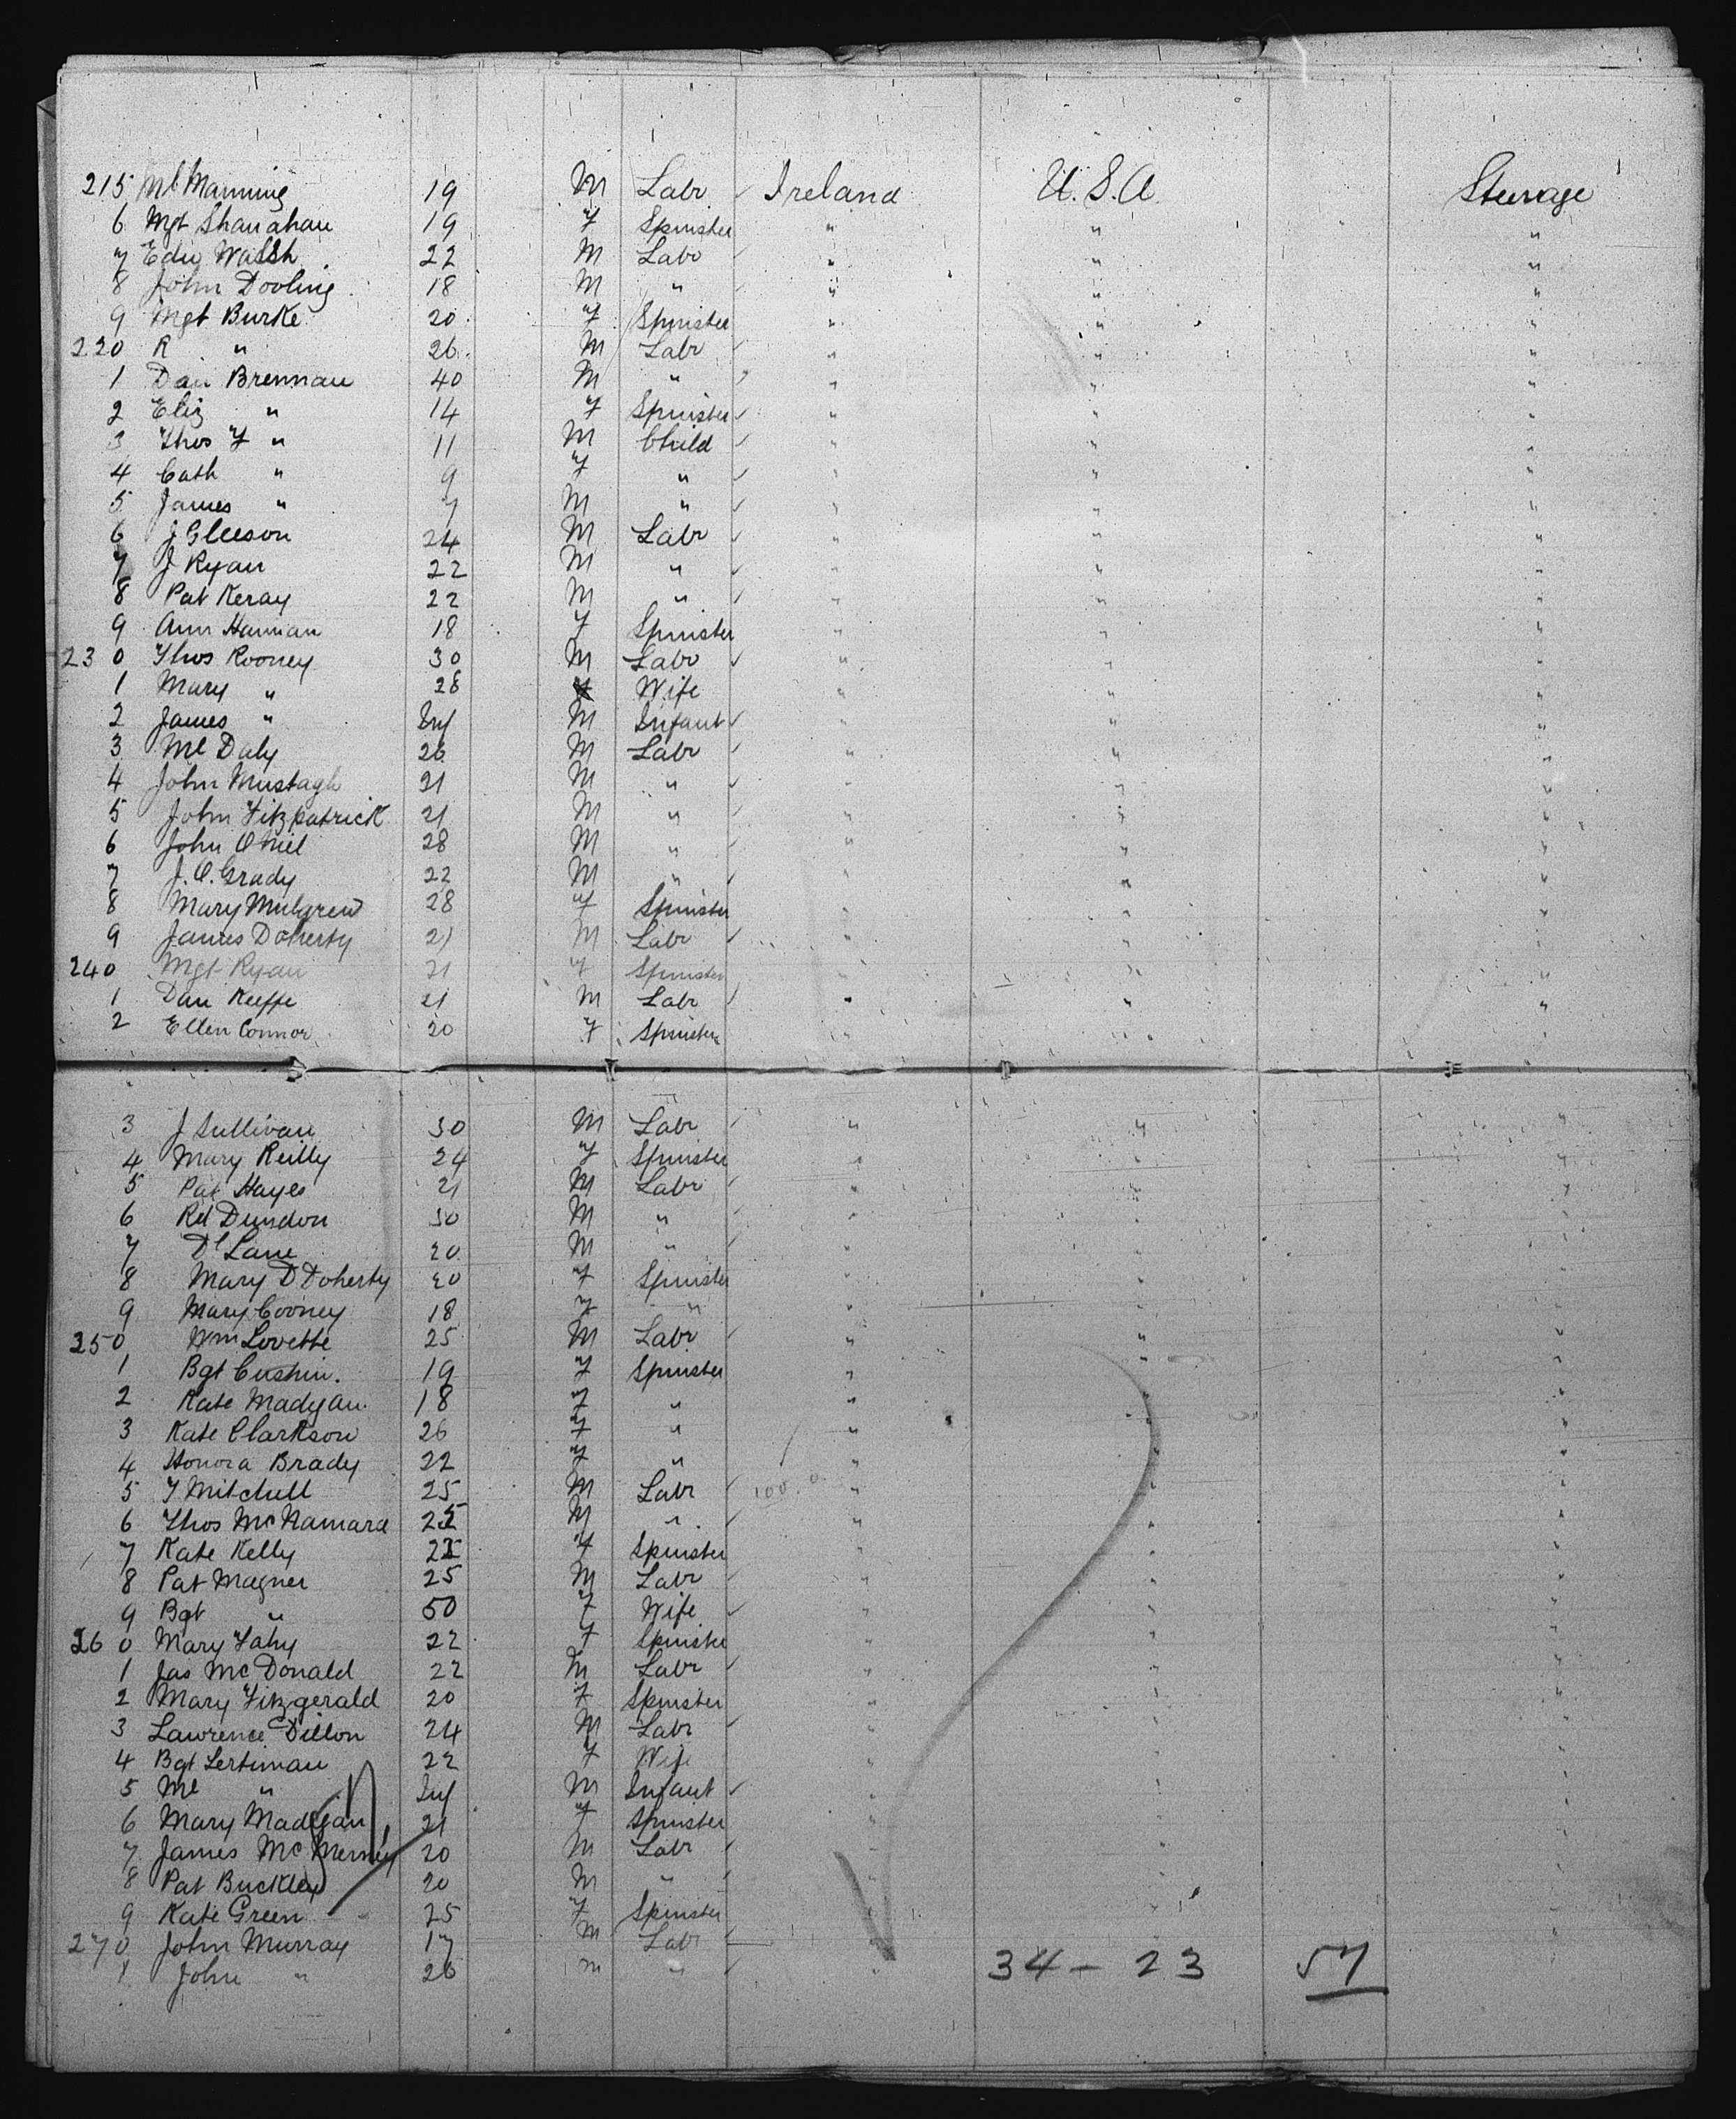 215 Ml Manning 19 M Labr Ireland U.S.A. Steerage
6 Mgt Shanahan 19 F Spinster " " "
7 Edw Walsh 22 M Labr " " "
8 John Dooling 18 M " " " "
9 Mgt Burke 20 F Spinster " " "
220 R " 26 M Labr " " "
1 Dan Brennan 40 M " " " "
2 Eliz " 14 F Spinster " " "
3 Thos F " 11 M Child " " "
4 Cath " 9 F " " " "
5 James " 7 M " " " "
6 J Gleeson 24 M Labr " " "
7 J Ryan 22 M " " " "
8 Pat Keray 22 M " " " "
9 Ann Hannan 18 F Spinster " " "
230 Thos Rooney 30 M Labr " " "
1 Mary " 28 F Wife " " "
2 James " Inf M Infant " " "
3 Ml Daly 26 M Labr " " "
4 John Murtagh 21 M " " " "
5 John Fitzpatrick 21 M " " " "
6 John O Niel 28 M " " " "
7 J. O. Grady 22 M " " " "
8 Mary Mulgrew 28 F Spinster " " "
9 James Doherty 21 M Labr " " "
240 Mgt Ryan 21 F Spinster " " "
1 Dan Keeffe 21 M Labr " " "
2 Ellen Connor 20 F Spinster " " "
3 J Sullivan 30 M Labr " " "
4 Mary Reilly 24 F Spinster " " "
5 Pat Hayes 21 M Labr " " "
6 Rd Dundon 30 M " " " "
7 Dl Lane 20 M " " " "
8 Mary D Doherty 20 F Spinster " " "
9 Mary Cooney 18 F " " " "
250 Wm Lovette 25 M Labr " " "
1 Bgt Cushin. 19 F Spinster " " "
2 Kate Madigan 18 F " " " "
3 Kate Clarkson 26 F " " " "
4 Honora Brady 22 F " " " "
5 T Mitchell 25 M Labr 100 " " "
6 Thos McNamara 25 M " " " "
7 Kate Kelly 25 F Spinster " " "
8 Pat Magner 25 M Labr " " "
9 Bgt " 50 F Wife " " "
260 Mary Fahy 22 F Spinster " " "
1 Jas McDonald 22 M Labr " " "
2 Mary Fitzgerald 20 F Spinster " " "
3 Lawrence Dillon 24 M Labr " " "
4 Bgt 22 F Wife " " "
5 Ml " Inf M Infant " " "
6 Mary Madigan 21 F Spinster " " "
7 James McInerney 20 M Labr " " "
8 Pat Buckley 20 M " " " "
9 Kate Green 25 F Spinster " " "
270 John Murray 17 M Labr " " "
1 John " 26 M " " 34 - 23 57